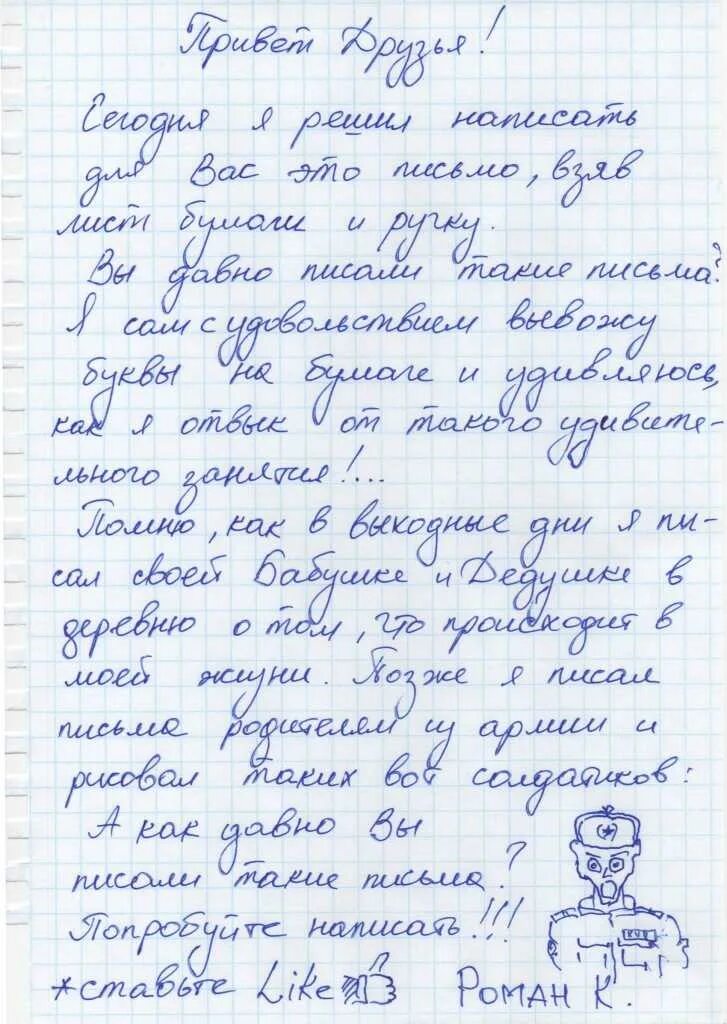 Привет Друзья!
Сегодня я решил написать
для Вас это письмо, взяв
лист бумаги и ручку.
Вы давно писали такие письма?
Я сам с удовольствием вывожу
буквы на бумаге и удивляюсь,
как я отвык от такого удивите-
льного занятия!...
Помню, как в выходные дни я пи-
сал своей Бабушке и Дедушке в
деревню о том, что происходит в
моей жизни. Позже я писал
письма родителям из армии и
рисовал таких вот солдатиков:
А как давно Вы
писали такие письма?
Попробуйте написать!!!
*ставьте Like
Роман К.